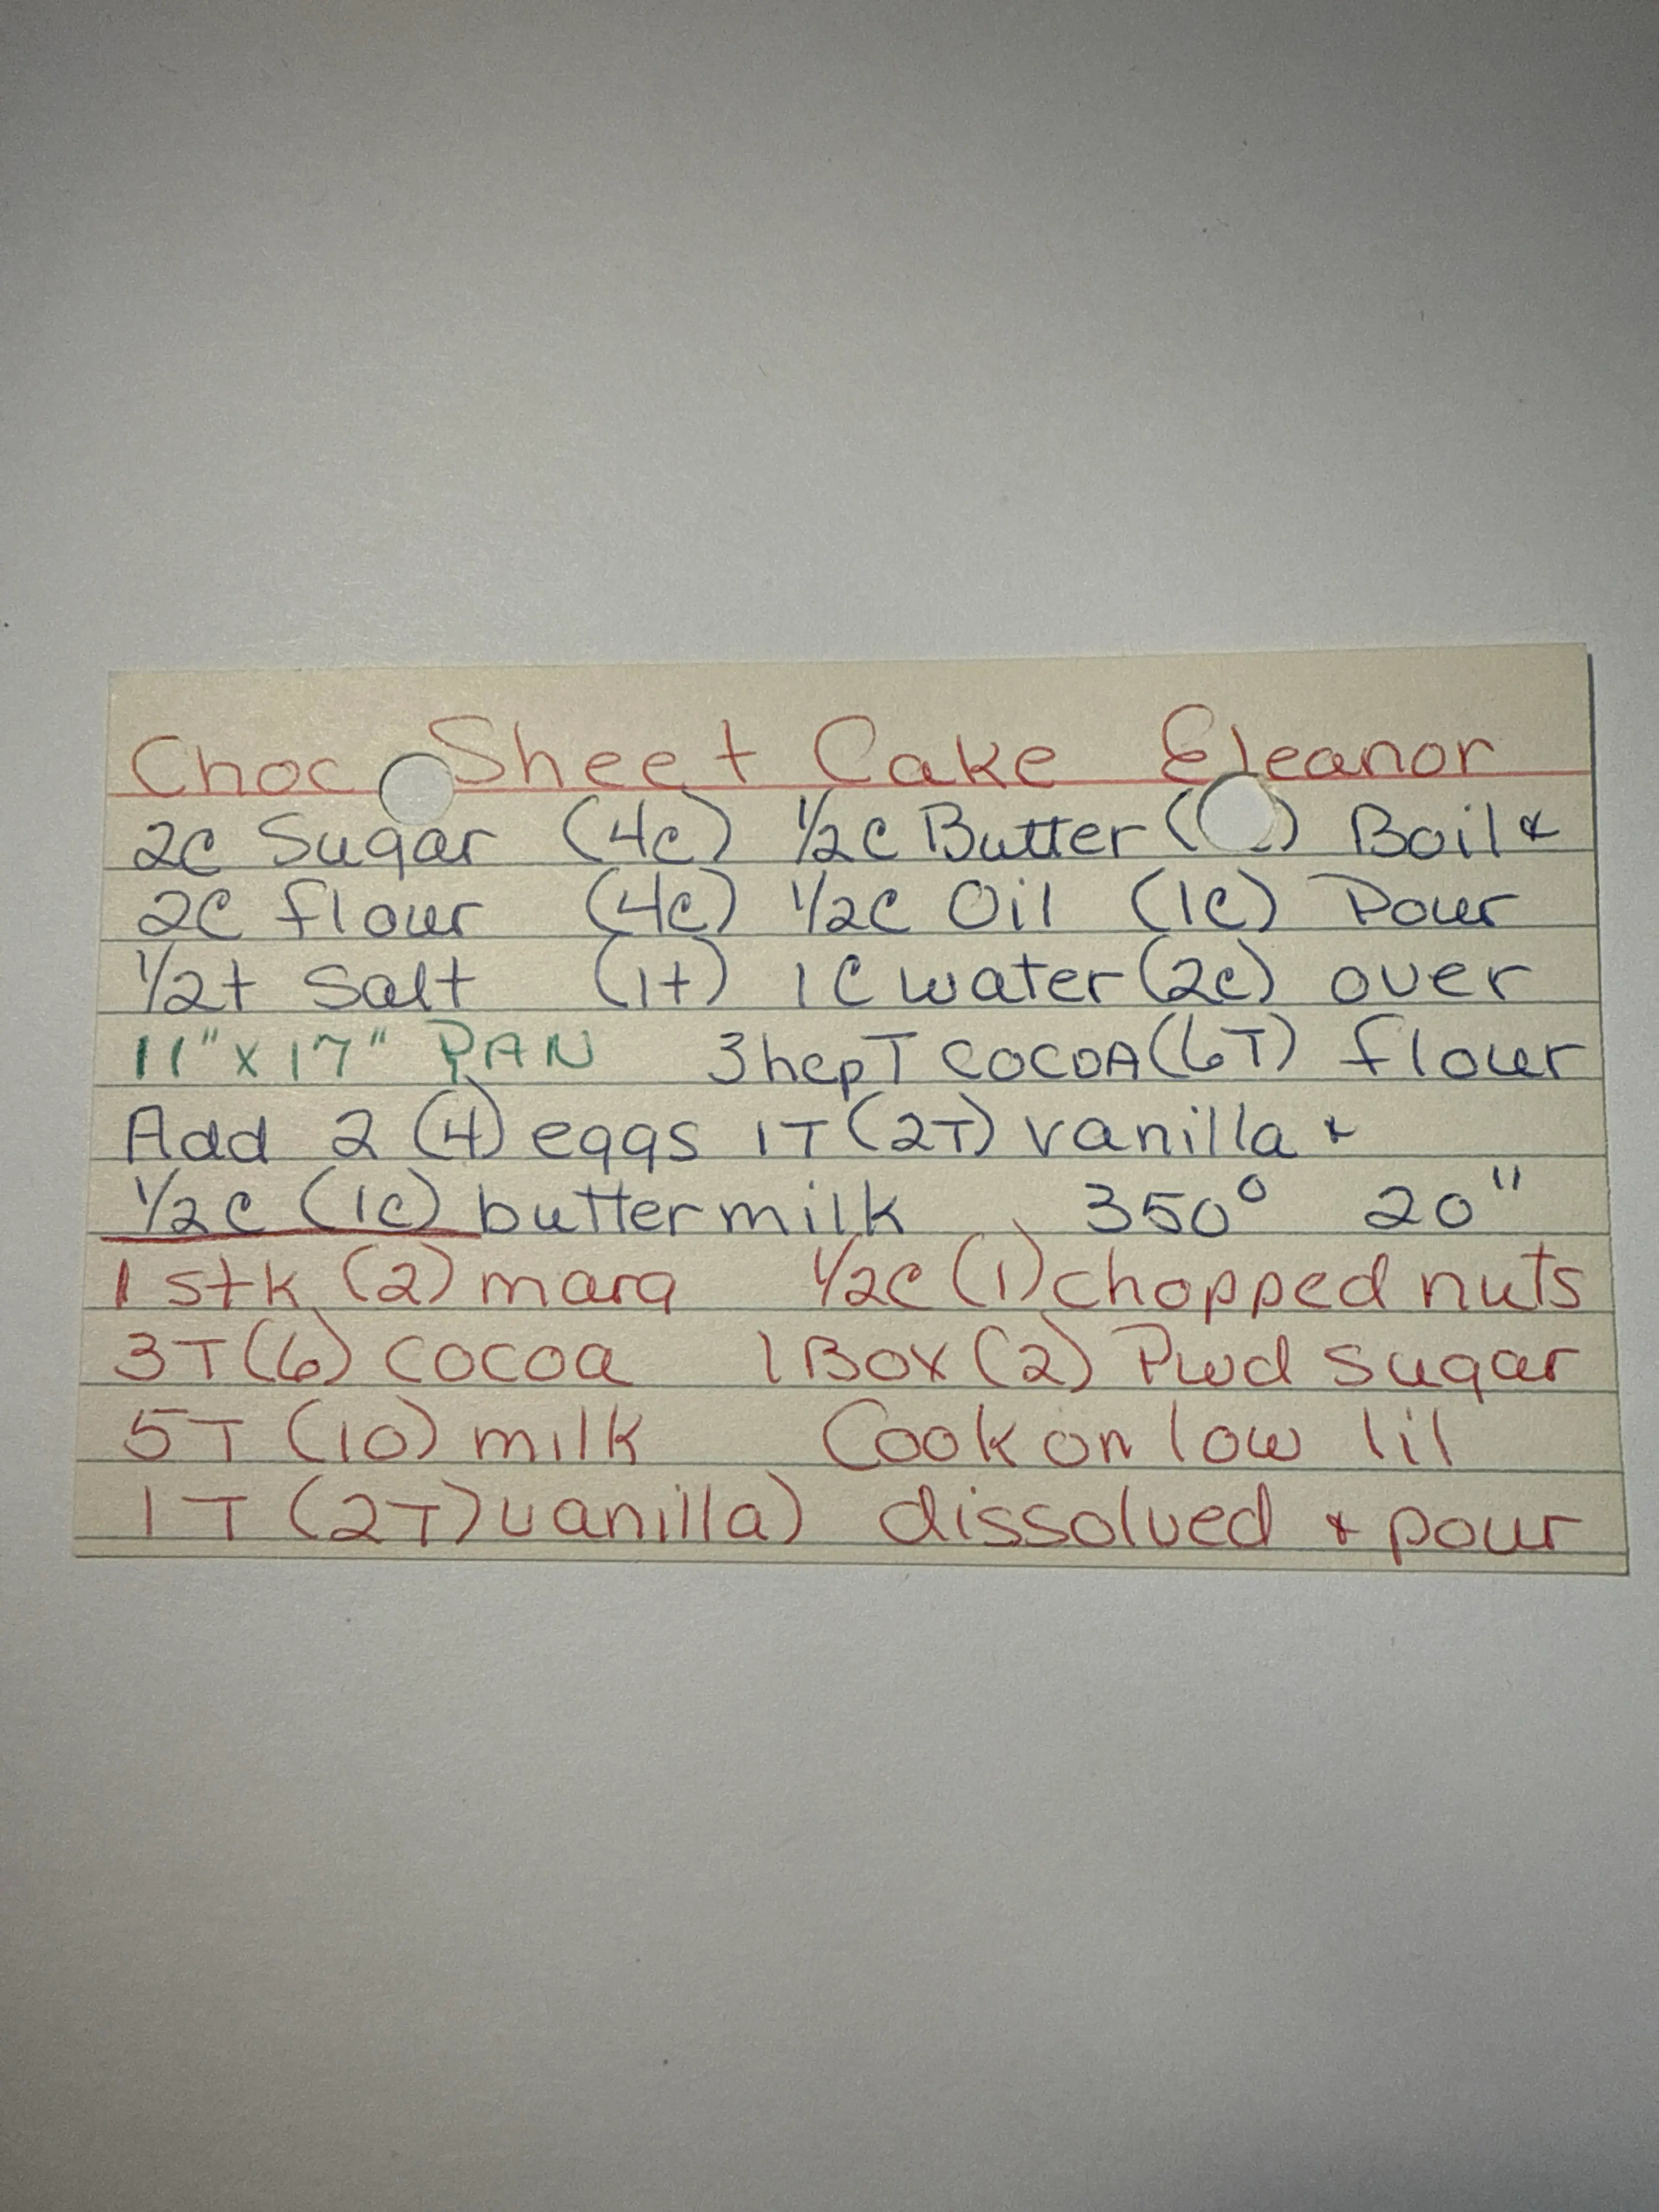 Choc Sheet Cake Eleanor
2c Sugar (4c) 1/2c Butter ( ) Boil &
2c flour (4c) 1/2c Oil (1c) Pour
1/2t Salt (1t) 1c water (2c) over
11" x 17" PAN 3 hep T COCOA (6T) flour
Add 2 (4) eggs 1T (2T) vanilla &
1/2c (1c) buttermilk 350° 20"
1 stk (2) marg 1/2c (1) chopped nuts
3T (6) cocoa 1 Box (2) Pwd sugar
5T (10) milk Cook on low lil
1T (2T) vanilla) dissolved & pour